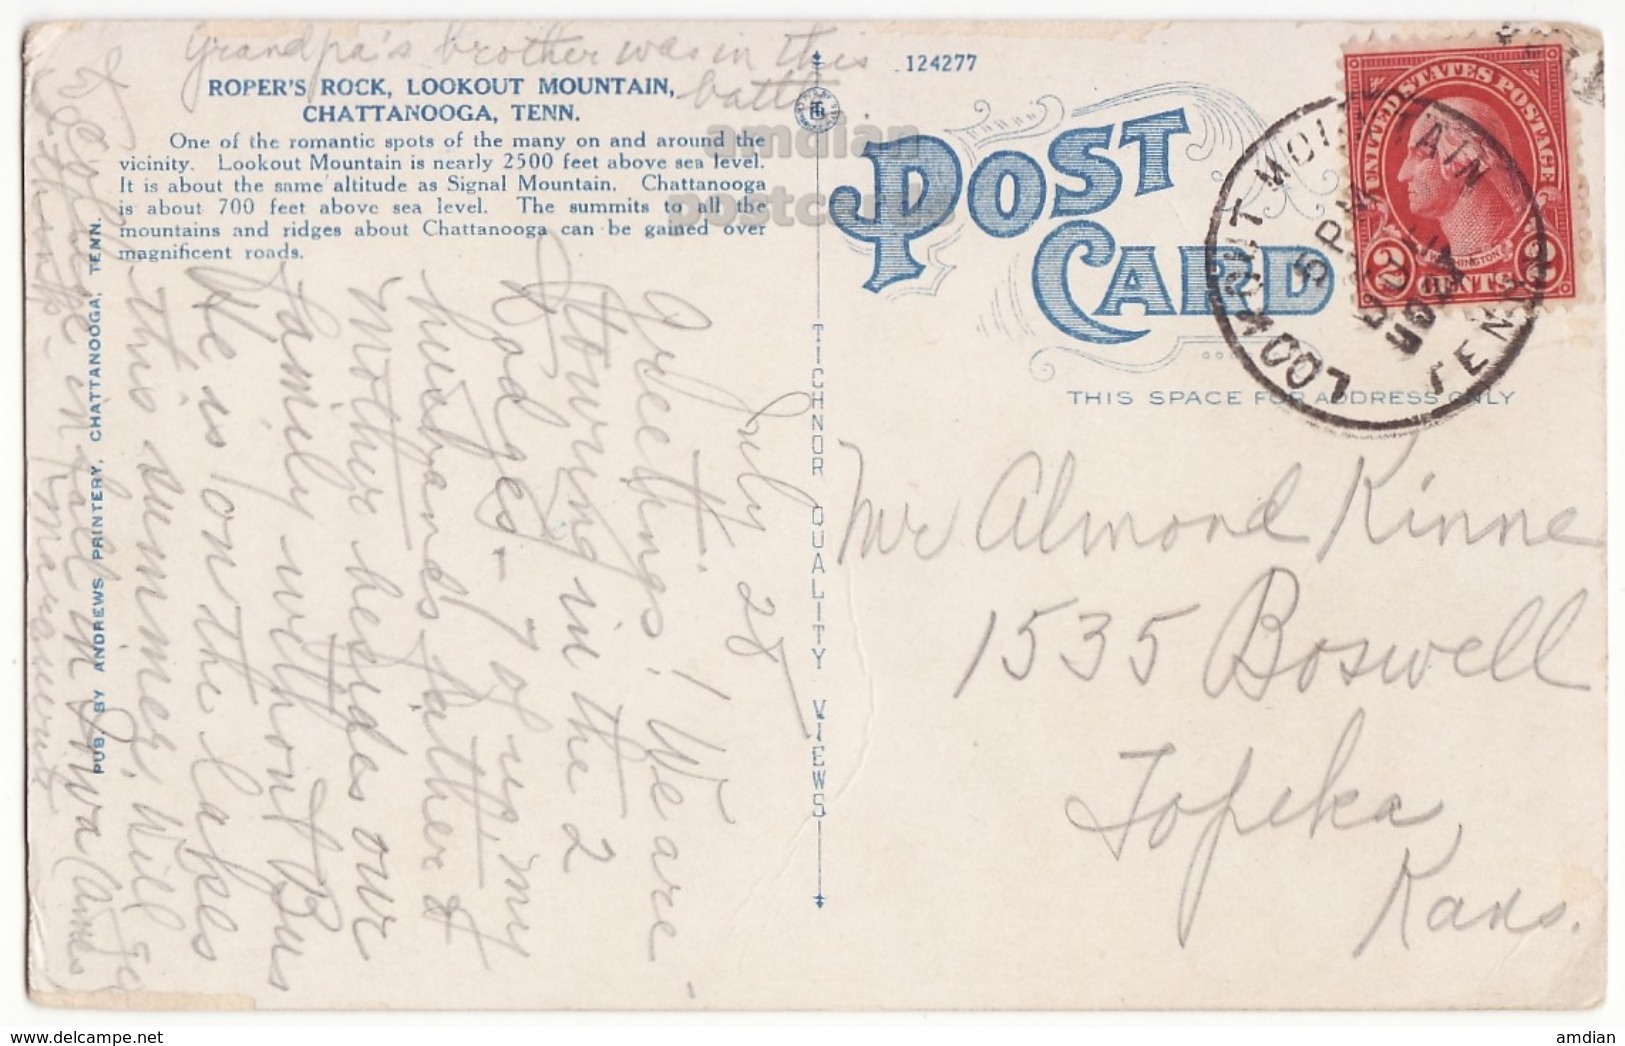 Grandpa's brother was in this
battle
ROPER'S ROCK, LOOKOUT MOUNTAIN,
CHATTANOOGA, TENN.
One of the romantic spots of the many on and around the
vicinity. Lookout Mountain is nearly 2500 feet above sea level.
It is about the same altitude as Signal Mountain. Chattanooga
is about 700 feet above sea level. The summits to all the
mountains and ridges about Chattanooga can be gained over
magnificent roads.
July 25
Greetings! We are
touring in the 2
Dodges - 7 of us, my
husband's father &
mother besides our
family without Bus
He is on the lakes
this summer. Will go
to college in fall in Iowa (Ames)
I think.
Marguerite
PUB. BY ANDREWS PRINTERY, CHATTANOOGA, TENN.
TICHNOR QUALITY VIEWS
124277
amdian
postcards
POST
CARD
THIS SPACE FOR ADDRESS ONLY
LOOKOUT MOUNTAIN
TENN.
5 PM
UNITED STATES POSTAGE
WASHINGTON
2 CENTS 2
Mr Almond Kinne
1535 Boswell
Topeka,
Kans.
amdian
delcampe.net